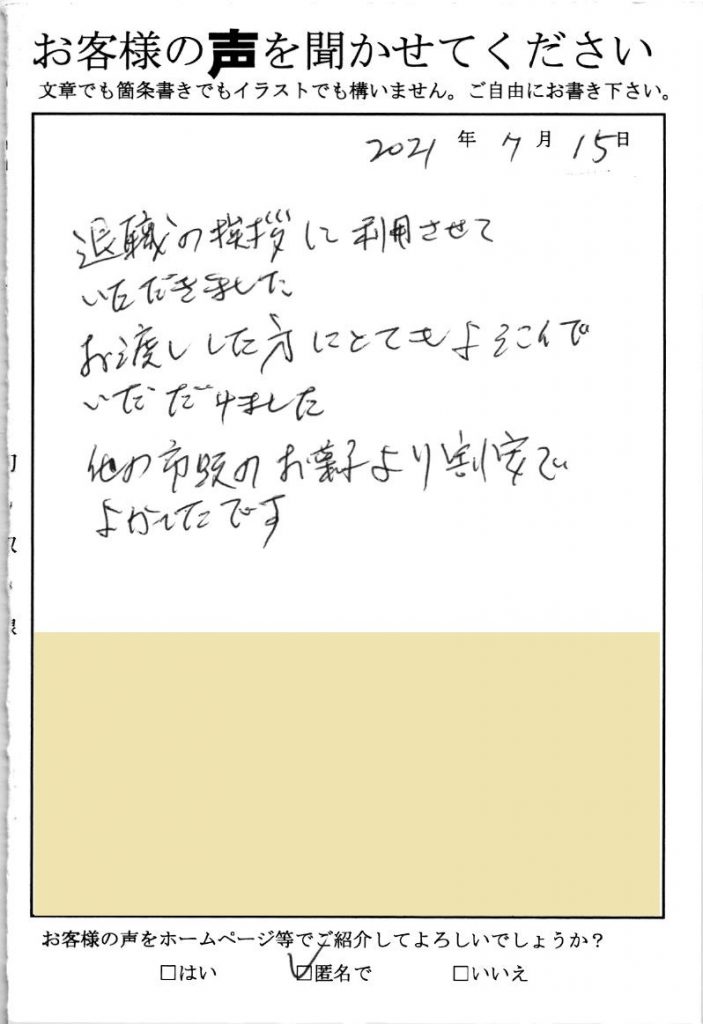 お客様の声を聞かせてください
文章でも箇条書きでもイラストでも構いません。ご自由にお書き下さい。
2021年7月15日
退職の挨拶に利用させて
いただきました
お渡しした方にとてもよろこんで
いただけました
他の市販のお菓子より割安で
よかったです
お客様の声をホームページ等でご紹介してよろしいでしょうか?
□はい ☑匿名で □いいえ